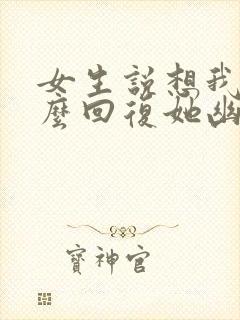 女生說想我
麼回復她幽
寶神官